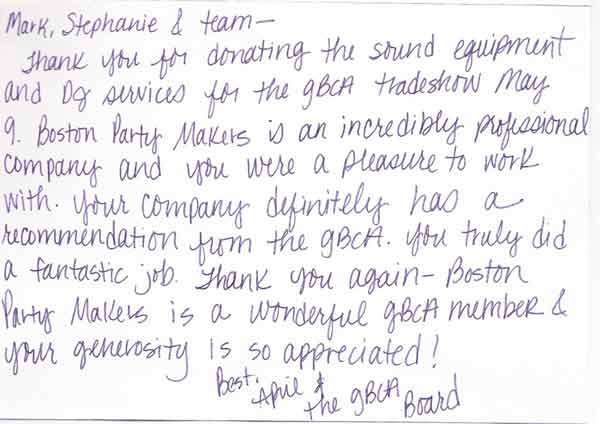 Mark, Stephanie & team—
Thank you for donating the sound equipment
and DJ services for the gBCA tradeshow May
9. Boston Party Makers is an incredibly professional
company and you were a pleasure to work
with. Your company definitely has a
recommendation from the gBCA. You truly did
a fantastic job. Thank you again— Boston
Party Makers is a wonderful gBCA member &
your generosity is so appreciated!
Best,
April &
the gBCA Board